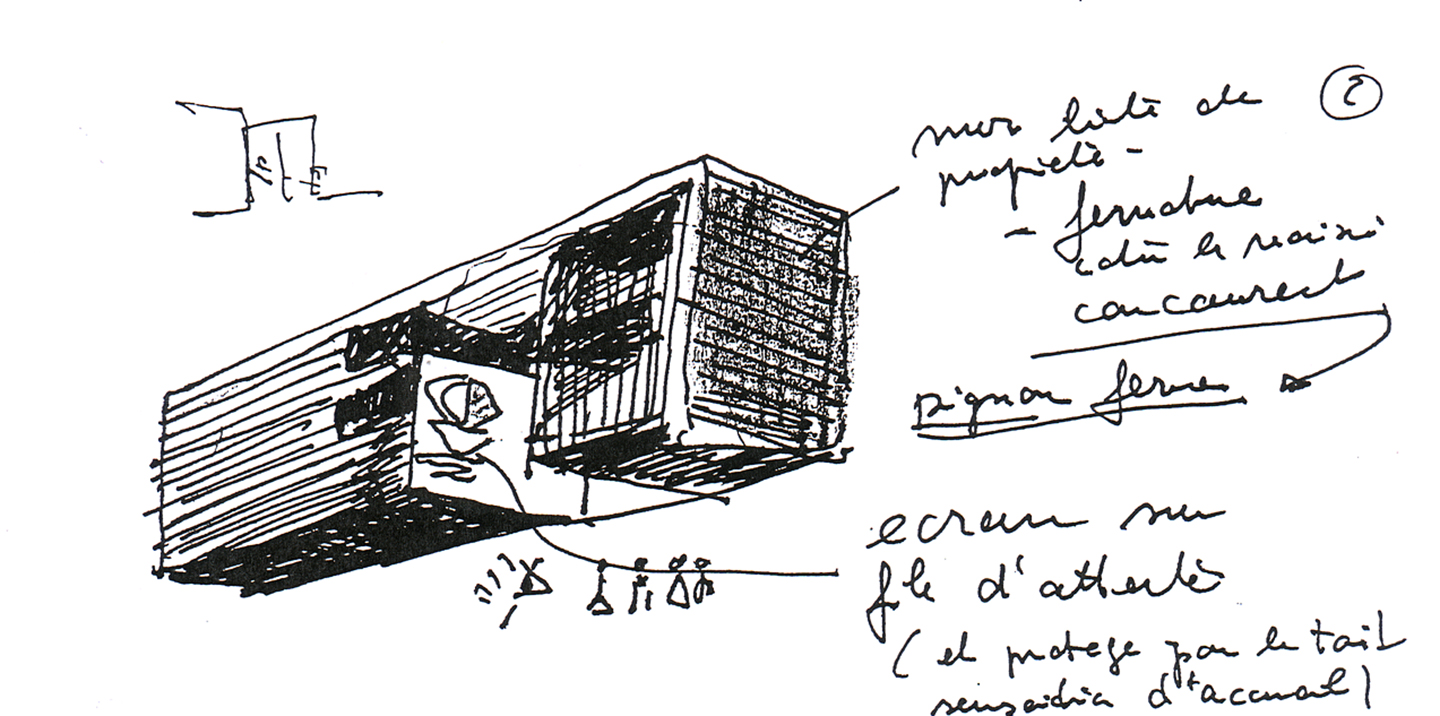 2
mur limite de
propriété -
- fermeture
côté le voisin
concourest
pignon ferme
ecran sur
file d'attente
( et protege par le toit
d'accueil )